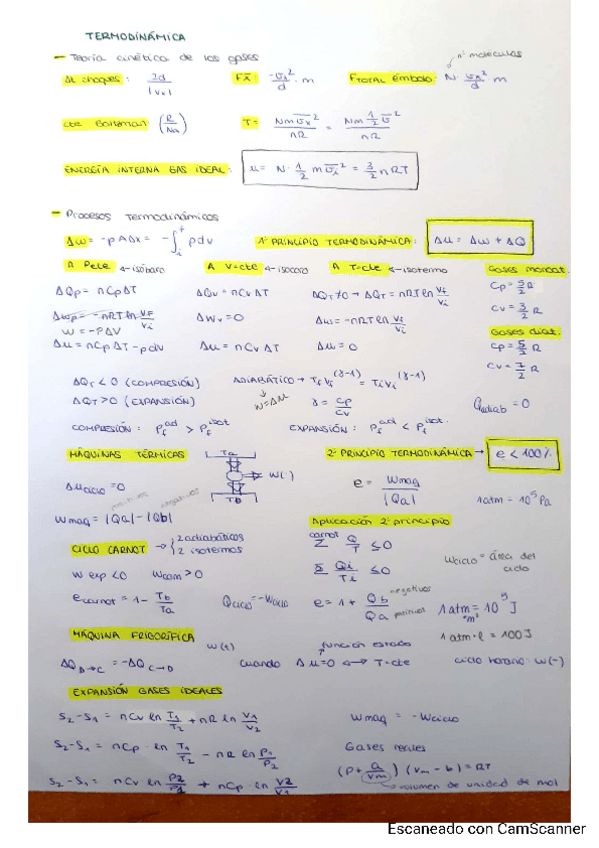 TERMODINÁMICA
- Teoría cinética de los gases
nº moléculas
Δt choques: 2d/|vx| Fx̄: -vx²/d · m FTOTAL émbolo: N · vx²/d m
cte Boltzman (R/Na) T = Nm vx²/nR = Nm ½ v²/nR
ENERGÍA INTERNA GAS IDEAL: u = N · ½ m vi² = 3/2 nRT
- Procesos termodinámicos
Δw = -pAΔx = -∫ pdv 1º PRINCIPIO TERMODINÁMICA: Δu = Δw + ΔQ
A P cte ← isóbaro A V=cte ← isocoro A T=cte ← isotermo Gases monoat.
ΔQp = nCpΔT ΔQv = nCvΔT ΔQT ≠ 0 → ΔQT = nRT ln Vf/Vi Cp = 5/2 R
Δwp = -nRT ln Vf/Vi ΔWv = 0 Δw = -nRT ln Vf/Vi Cv = 3/2 R
W = -PΔV Gases diat.
Δu = nCpΔT - pdv Δu = nCvΔT Δu = 0 Cp = 5/3 R
Cv = 7/2 R
ΔQT < 0 (COMPRESIÓN) ADIABÁTICO → TfVf^(γ-1) = TiVi^(γ-1)
ΔQT > 0 (EXPANSIÓN) W=ΔU γ = Cp/Cv Qadiab = 0
COMPRESIÓN: Pf^ad > Pf^isot EXPANSIÓN: Pf^ad < Pf^isot.
MÁQUINAS TÉRMICAS Ta W(-) Tb 2º PRINCIPIO TERMODINÁMICA → e < 100%
Δu ciclo = 0 e = Wmaq/|Qa| 1 atm = 10⁵ Pa
positivos negativos
Wmaq = |Qa| - |Qb| Aplicación 2º principio
CICLO CARNOT → { 2 adiabáticos 2 isotermos carnot Σ Q/T ≤ 0
Σ Qi/Ti ≤ 0 Wciclo = área del ciclo
W exp < 0 Wcom > 0
ecarnot = 1 - Tb/Ta Qciclo = -Wciclo e = 1 + Qb/Qa negativos positivos 1 atm · m³ = 10⁵ J
MÁQUINA FRIGORÍFICA W(+) función estado 1 atm · l = 100 J
ΔQ D→C = -ΔQ C→D cuando Δu=0 ↔ T=cte ciclo horario: W(-)
EXPANSIÓN GASES IDEALES
S2-S1 = nCv ln T1/T2 + nR ln V1/V2 Wmaq = -Wciclo
S2-S1 = nCp · ln T1/T2 - nR ln P1/P2 Gases reales
(P + a/Vm) (Vm - b) = RT
S2-S1 = nCv ln P2/P1 + nCp ln V2/V1 volumen de unidad de mol
Escaneado con CamScanner